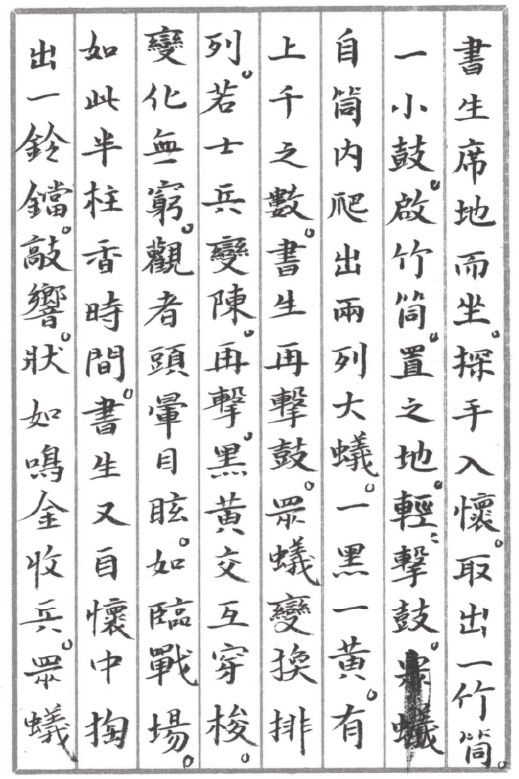 書生席地而坐。探手入懷。取出一竹筒。
一小鼓。啟竹筒。置之地。輕〻擊鼓。眾蟻
自筒内爬出兩列大蟻。一黑一黃。有
上千之數。書生再擊鼓。眾蟻變換排
列。若士兵變陳。再擊。黑黃交互穿梭。
變化無窮。觀者頭暈目眩。如臨戰場。
如此半柱香時間。書生又自懷中掏
出一鈴鐺。敲響。狀如鳴金收兵。眾蟻